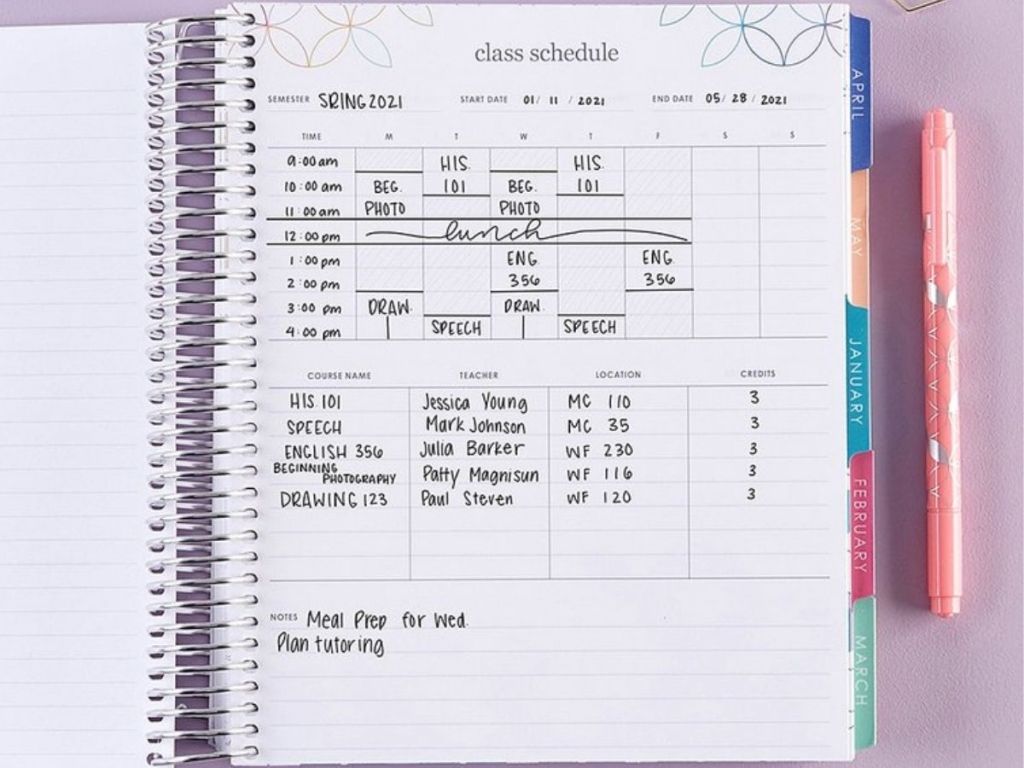 class schedule
SEMESTER SRING 2021 START DATE 01/ 11 / 2021 END DATE 05/ 28 / 2021
TIME M T W T F S S
9:00 am HIS. HIS.
10:00 am BEG. 101 BEG. 101
11:00 am PHOTO PHOTO
12:00 pm lunch
1:00 pm ENG. ENG.
2:00 pm 356 356
3:00 pm DRAW. DRAW.
4:00 pm SPEECH SPEECH
COURSE NAME TEACHER LOCATION CREDITS
HIS. 101 Jessica Young MC 110 3
SPEECH Mark Johnson MC 35 3
ENGLISH 356 Julia Barker WF 230 3
BEGINNING PHOTOGRAPHY Patty Magnisun WF 116 3
DRAWING 123 Paul Steven WF 120 3
NOTES Meal Prep for Wed.
Plan tutoring
APRIL
MAY
JANUARY
FEBRUARY
MARCH